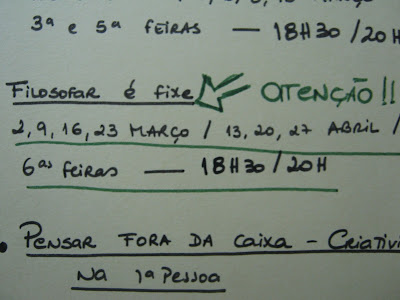 3ª e 5ª FEIRAS — 18H30 / 20H
FILOSOFAR é fixe ATENÇÃO!!
2, 9, 16, 23 MARÇO / 13, 20, 27 ABRIL /
6as feiras — 18H30 / 20H
• PENSAR FORA DA CAIXA - CRIATIVI
NA 1ª PESSOA